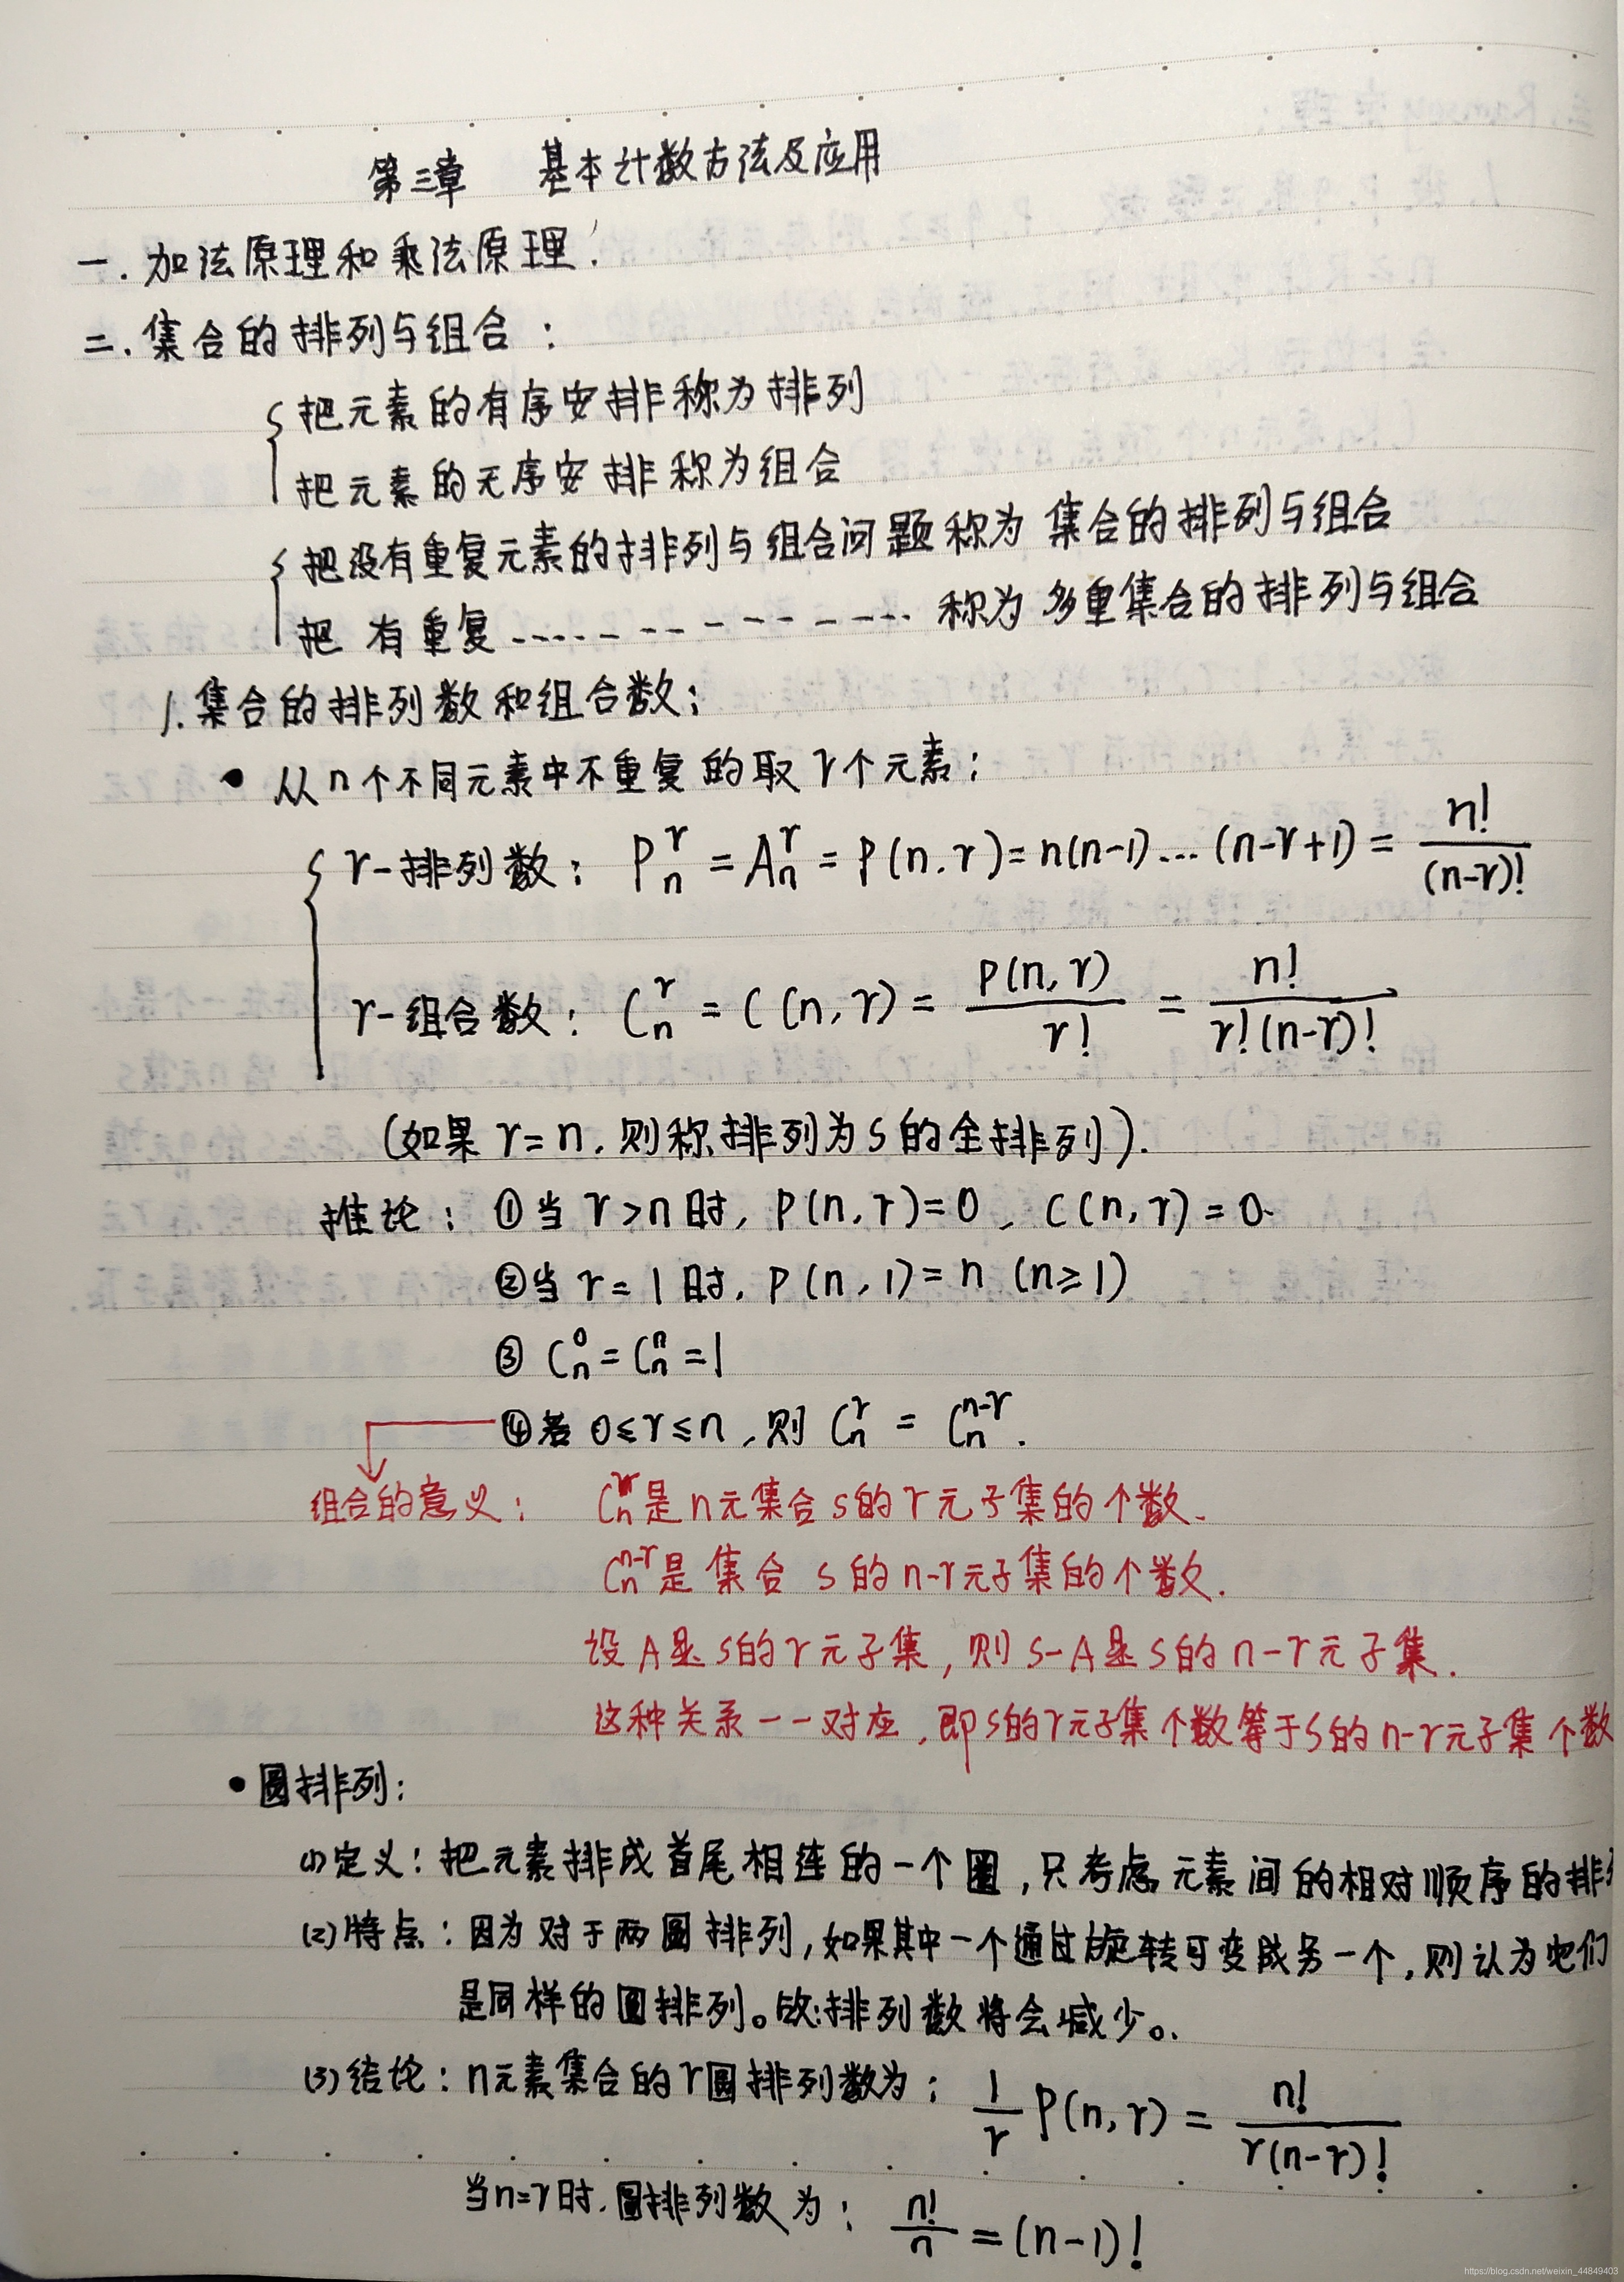 第三章 基本计数方法及应用
一.加法原理和乘法原理.
二.集合的排列与组合:
把元素的有序安排称为排列
把元素的无序安排称为组合
把没有重复元素的排列与组合问题称为 集合的排列与组合
把 有重复------------称为多重集合的排列与组合
1.集合的排列数和组合数:
• 从n个不同元素中不重复的取r个元素:
r-排列数: P_n^r = A_n^r = P(n.r) = n(n-1)...(n-r+1) = n!/(n-r)!
r-组合数: C_n^r = C(n,r) = P(n,r)/r! = n!/r!(n-r)!
(如果 r=n,则称排列为S的全排列).
推论: ①当 r>n时, P(n,r)=0, C(n,r)=0.
②当 r=1时, P(n,1)=n (n≥1)
③ C_n^0 = C_n^n =1
④若 0≤r≤n,则 C_n^r = C_n^{n-r}.
组合的意义: C_n^r是n元集合S的r元子集的个数.
C_n^{n-r}是集合 S的n-r元子集的个数.
设A是S的r元子集,则S-A是S的n-r元子集.
这种关系一一对应,即S的r元子集个数等于S的n-r元子集个数
• 圆排列:
(1)定义:把元素排成首尾相连的一个圈,只考虑元素间的相对顺序的排
(2)特点:因为对于两圆排列,如果其中一个通过旋转可变成另一个,则认为它们
是同样的圆排列。故:排列数将会减少。
(3)结论:n元素集合的r圆排列数为: 1/r P(n,r) = n!/r(n-r)!
当n=r时,圆排列数为: n!/n = (n-1)!
https://blog.csdn.net/weixin_44849403